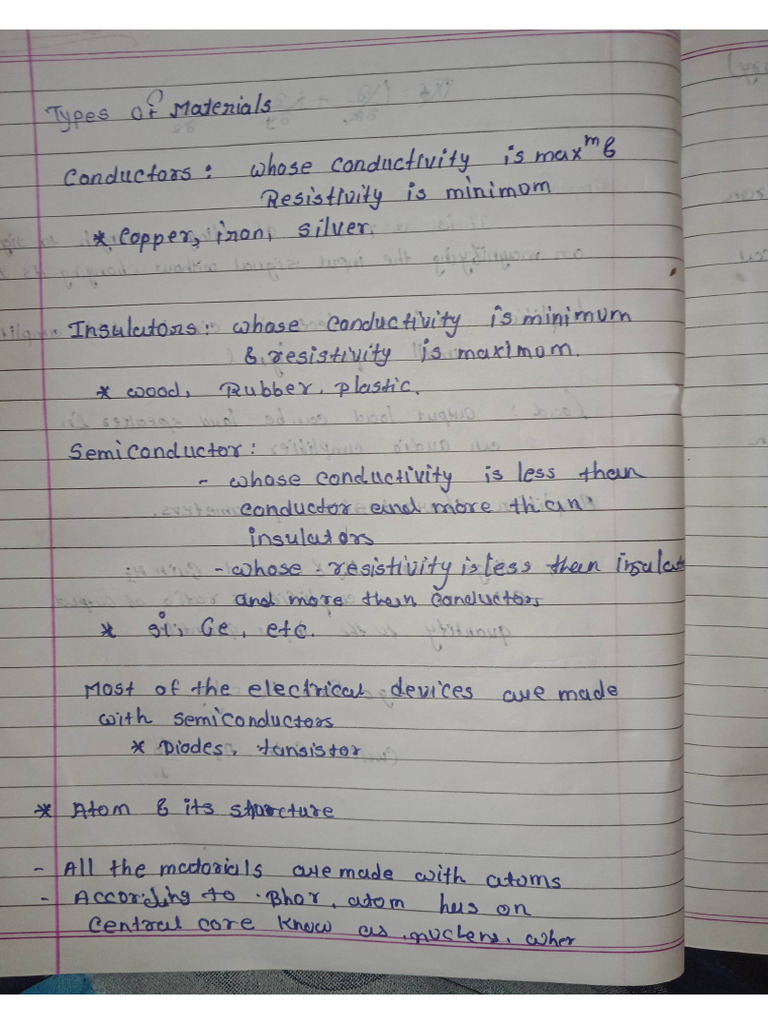 Types of Materials
Conductors: whose conductivity is max^m &
Resistivity is minimom
* Copper, iron, silver.
Insulators: whose conductivity is minimum
& resistivity is maximom.
* wood, Rubber, plastic.
Semiconductor:
- whose conductivity is less than
conductor and more than
insulators
- whose resistivity is less than insulat
and more than conductors
* Si, Ge, etc.
Most of the electrical devices are made
with semiconductors
* Diodes, tansistor
* Atom & its structure
- All the matorials are made with atoms
- According to Bhor, atom has on
central core know as, nuclens, wher